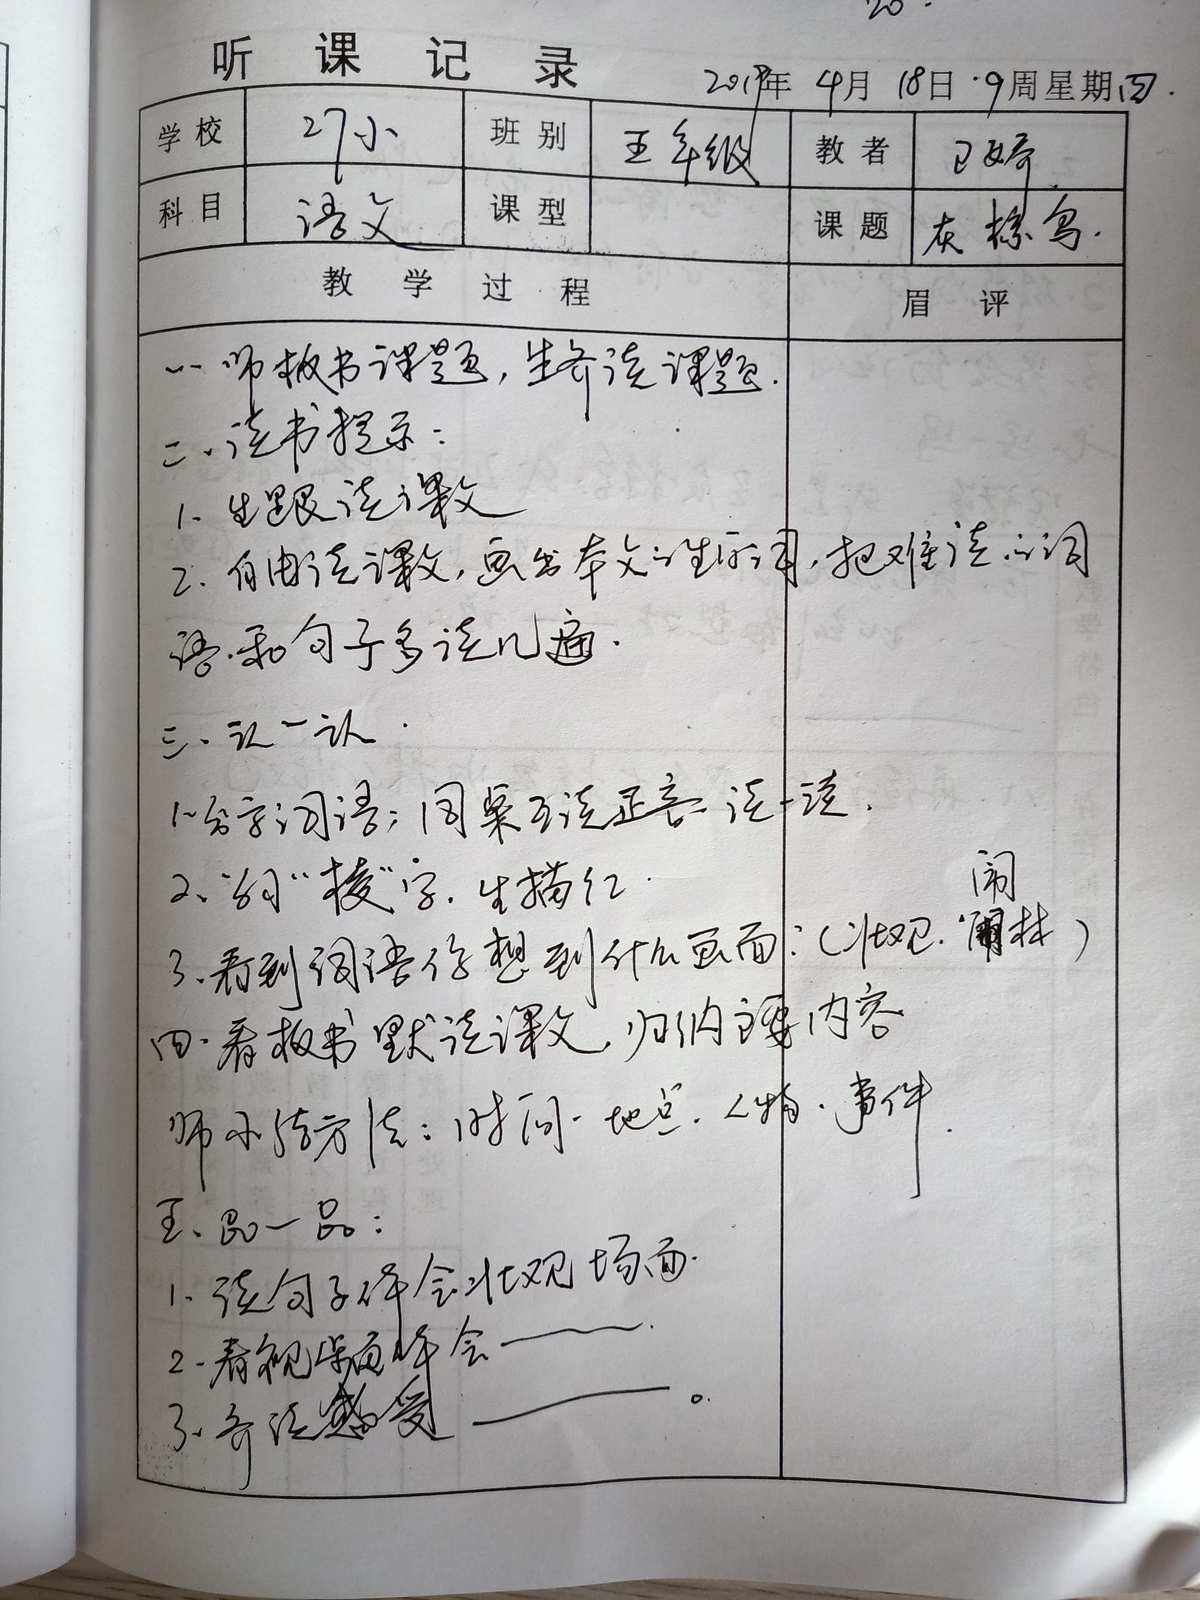 20.
听课记录
2019年 4月 18日 9周星期四.
学校 27小 班别 五年级 教者 卫婷
科目 语文 课型 课题 灰椋鸟.
教学过程 眉评
一. 师板书课题, 生齐读课题.
二. 读书提示:
1. 生跟读课文
2. 自由读课文, 画出本文生字词, 把难读的词
语.和句子多读几遍.
三. 认一认.
1. 生字词语; 同桌互读正音 读一读.
2. 写"棱"字. 生描红.
闹
3. 看到词语你想到什么画面: (壮观. 闹林)
四. 看板书 默读课文, 归纳主要内容
师小结方法: 时间. 地点. 人物. 事件.
五. 品一品:
1. 读句子体会壮观场面.
2. 看视频画面体会
3. 齐读感受 。